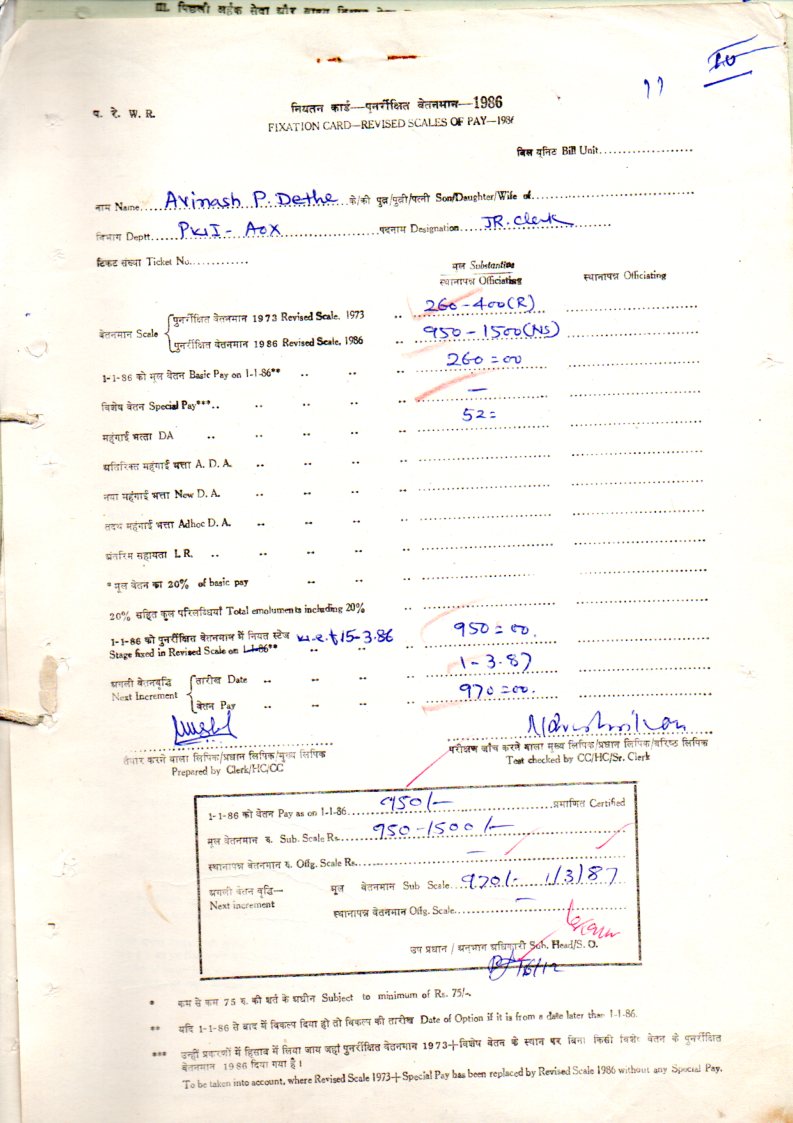 III. पिछली अर्हक सेवा और
10
11
प. रे. W. R.
नियतन कार्ड—पुनर्रीक्षित वेतनमान—1986
FIXATION CARD—REVISED SCALES OF PAY—1986
बिल यूनिट Bill Unit....................
नाम Name..... Avinash P. Dethe के/की पुत्र/पुत्री/पत्नी Son/Daughter/Wife of............
विभाग Deptt...... पदनाम Designation.... JR. Clerk
टिकट संख्या Ticket No............
मूल Substantive
स्थानापन्न Officiating स्थानापन्न Officiating
वेतनमान Scale
पुनर्रीक्षित वेतनमान 1973 Revised Scale, 1973 .. 260-400(R)
पुनर्रीक्षित वेतनमान 1986 Revised Scale, 1986 .. 950-1500(NS)
1-1-86 को मूल वेतन Basic Pay on 1-1-86** .. .. .. 260=00
विशेष वेतन Special Pay***.. .. .. .. —
महंगाई भत्ता DA .. .. .. .. .. 52=
अतिरिक्त महंगाई भत्ता A. D. A. .. .. .. ..
नया महंगाई भत्ता New D. A. .. .. .. ..
तदर्थ महंगाई भत्ता Adhoc D. A. .. .. .. ..
अंतरिम सहायता I. R. .. .. .. .. ..
* मूल वेतन का 20% of basic pay .. .. ..
20% सहित कुल परिलब्धियां Total emoluments including 20% ..
1-1-86 को पुनर्रीक्षित वेतनमान में नियत स्टेज w.e.f 15-3.86 950=00.
Stage fixed in Revised Scale on 1-1-86** .. .. ..
अगली वेतनवृद्धि
Next Increment
तारीख Date .. .. .. .. 1-3.87
वेतन Pay .. .. .. .. 970=00.
तैयार करने वाला लिपिक/प्रधान लिपिक/मुख्य लिपिक
Prepared by Clerk/HC/CC
परीक्षण जाँच करने वाला मुख्य लिपिक/प्रधान लिपिक/वरिष्ठ लिपिक
Test checked by CC/HC/Sr. Clerk
1-1-86 को वेतन Pay as on 1-1-86..... 950/- ........प्रमाणित Certified
मूल वेतनमान रु. Sub. Scale Rs.... 950-1500/-
स्थानापन्न वेतनमान रु. Offg. Scale Rs.... —
अगली वेतन वृद्धि—
Next increment
मूल वेतनमान Sub Scale.. 970/- 1/3/87
स्थानापन्न वेतनमान Offg. Scale.... —
उप प्रधान / अनुभाग अधिकारी Sub. Head/S. O.
16/12
* कम से कम 75 रु. की शर्त के अधीन Subject to minimum of Rs. 75/-.
** यदि 1-1-86 से बाद में विकल्प दिया हो तो विकल्प की तारीख Date of Option if it is from a date later than 1-1-86.
*** उन्हीं प्रकरणों में हिसाब में लिया जाय जहाँ पुनर्रीक्षित वेतनमान 1973+विशेष वेतन के स्थान पर बिना किसी विशेष वेतन के पुनर्रीक्षित
वेतनमान 1986 दिया गया है।
To be taken into account, where Revised Scale 1973+Special Pay has been replaced by Revised Scale 1986 without any Special Pay.